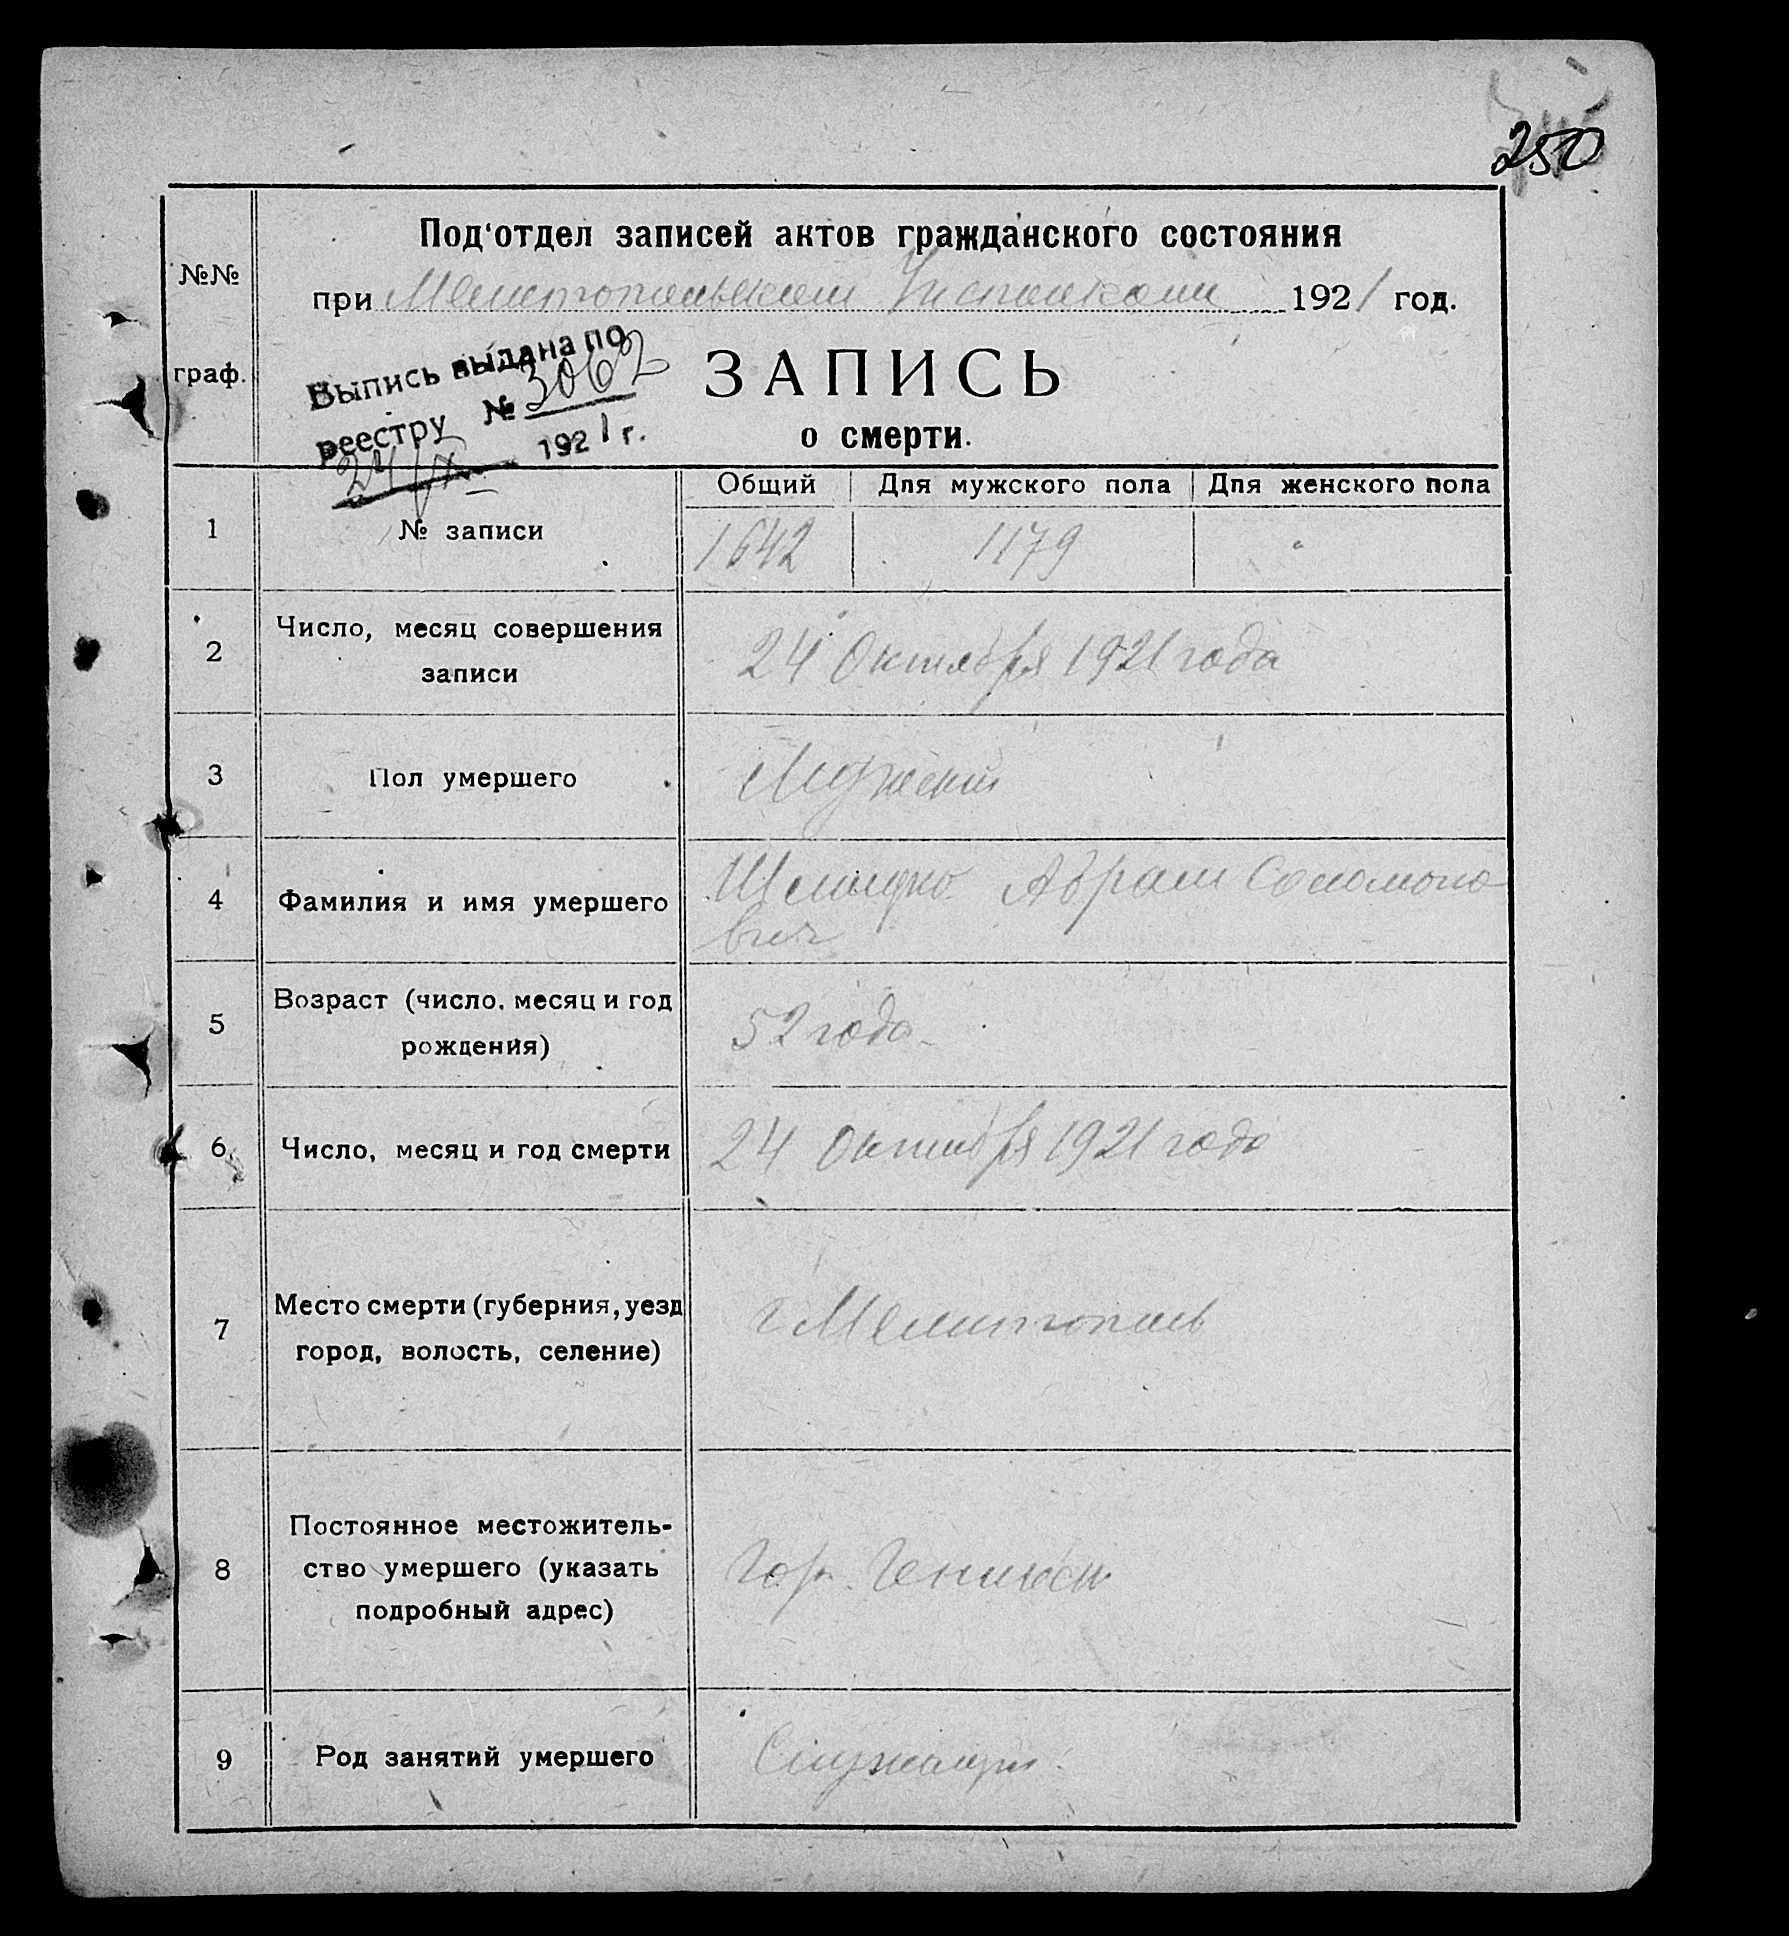 250
Под‘отдел записей актов гражданского состояния
№№
при Мелитопольском Исполкоме 1921 год.
граф.
Выпись выдана по
реестру № 3062
24/X 1921 г.
ЗАПИСЬ
о смерти.
Общий Для мужского пола Для женского пола
1 № записи 1642 1179 "
2 Число, месяц совершения
записи
24 Октября 1921 года
3 Пол умершего Мужской
4 Фамилия и имя умершего
Абрам Соломоно
вич
5 Возраст (число, месяц и год
рождения)
52 года
6 Число, месяц и год смерти 24 Октября 1921 года
7 Место смерти (губерния, уезд
город, волость, селение)
г Мелитополь
8 Постоянное местожитель-
ство умершего (указать
подробный адрес)
Гор. Геническ
9 Род занятий умершего Служащий